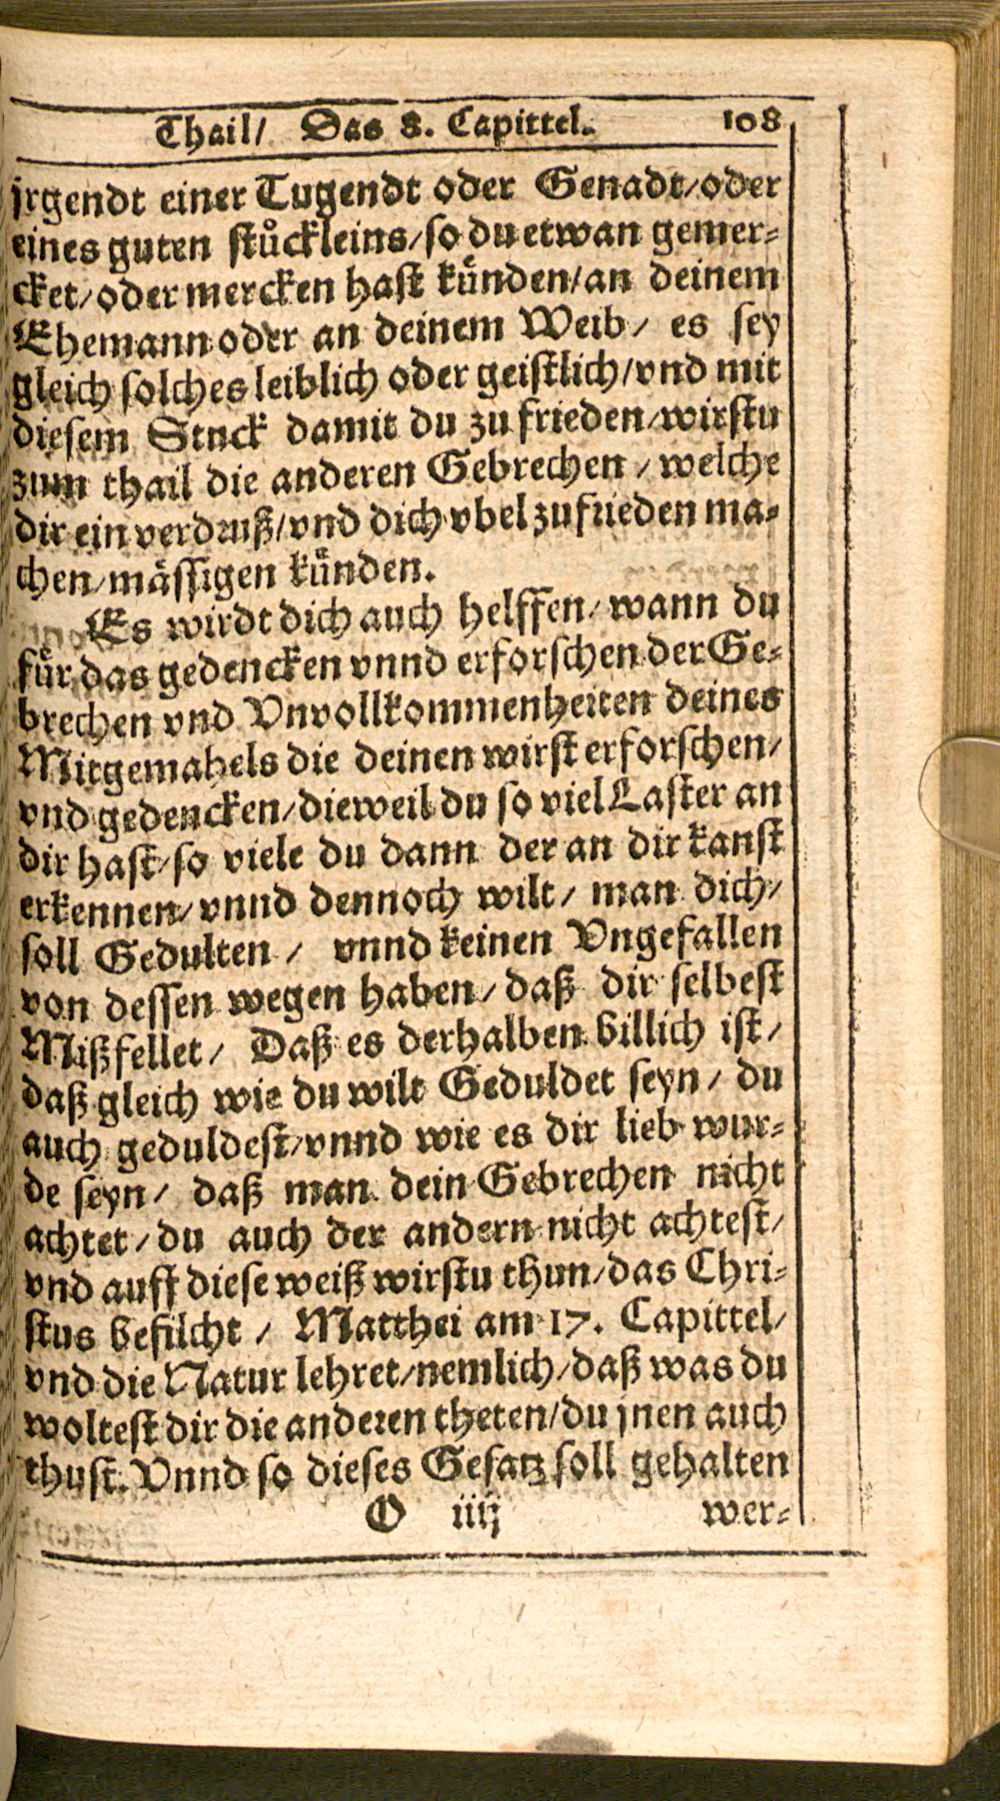 Thail/ Das 8. Capittel. 108
jrgendt einer Tugendt oder Genadt/oder
eines guten stuͤckleins/so du etwan gemer-
cket/oder mercken hast kuͤnden/an deinem
Ehemann oder an deinem Weib/ es sey
gleich solches leiblich oder geistlich/vnd mit
diesem Stnck damit du zu frieden/wirstu
zum thail die anderen Gebrechen/welche
dir ein verdruß/vnd dich vbel zufrieden ma-
chen/maͤssigen kuͤnden.
Es wirdt dich auch helffen/wann du
fuͤr das gedencken vnnd erforschen der Ge-
brechen vnd Vnvollkommenheiten deines
Mitgemahels die deinen wirst erforschen/
vnd gedencken/dieweil du so viel Laster an
dir hast/so viele du dann der an dir kanst
erkennen/vnnd dennoch wilt/ man dich/
soll Gedulten/ vnnd keinen Vngefallen
von dessen wegen haben/daß dir selbest
Mißfellet/ Daß es derhalben billich ist/
daß gleich wie du wilt Geduldet seyn/ du
auch geduldest/vnnd wie es dir lieb wur-
de seyn/ daß man dein Gebrechen nicht
achtet/du auch der andern nicht achtest/
vnd auff diese weiß wirstu thun/das Chri-
stus befilcht/ Matthei am 17. Capittel/
vnd die Natur lehret/nemlich/daß was du
woltest dir die anderen theten/du jnen auch
thust. Vnnd so dieses Gesatz soll gehalten
O iiij wer-